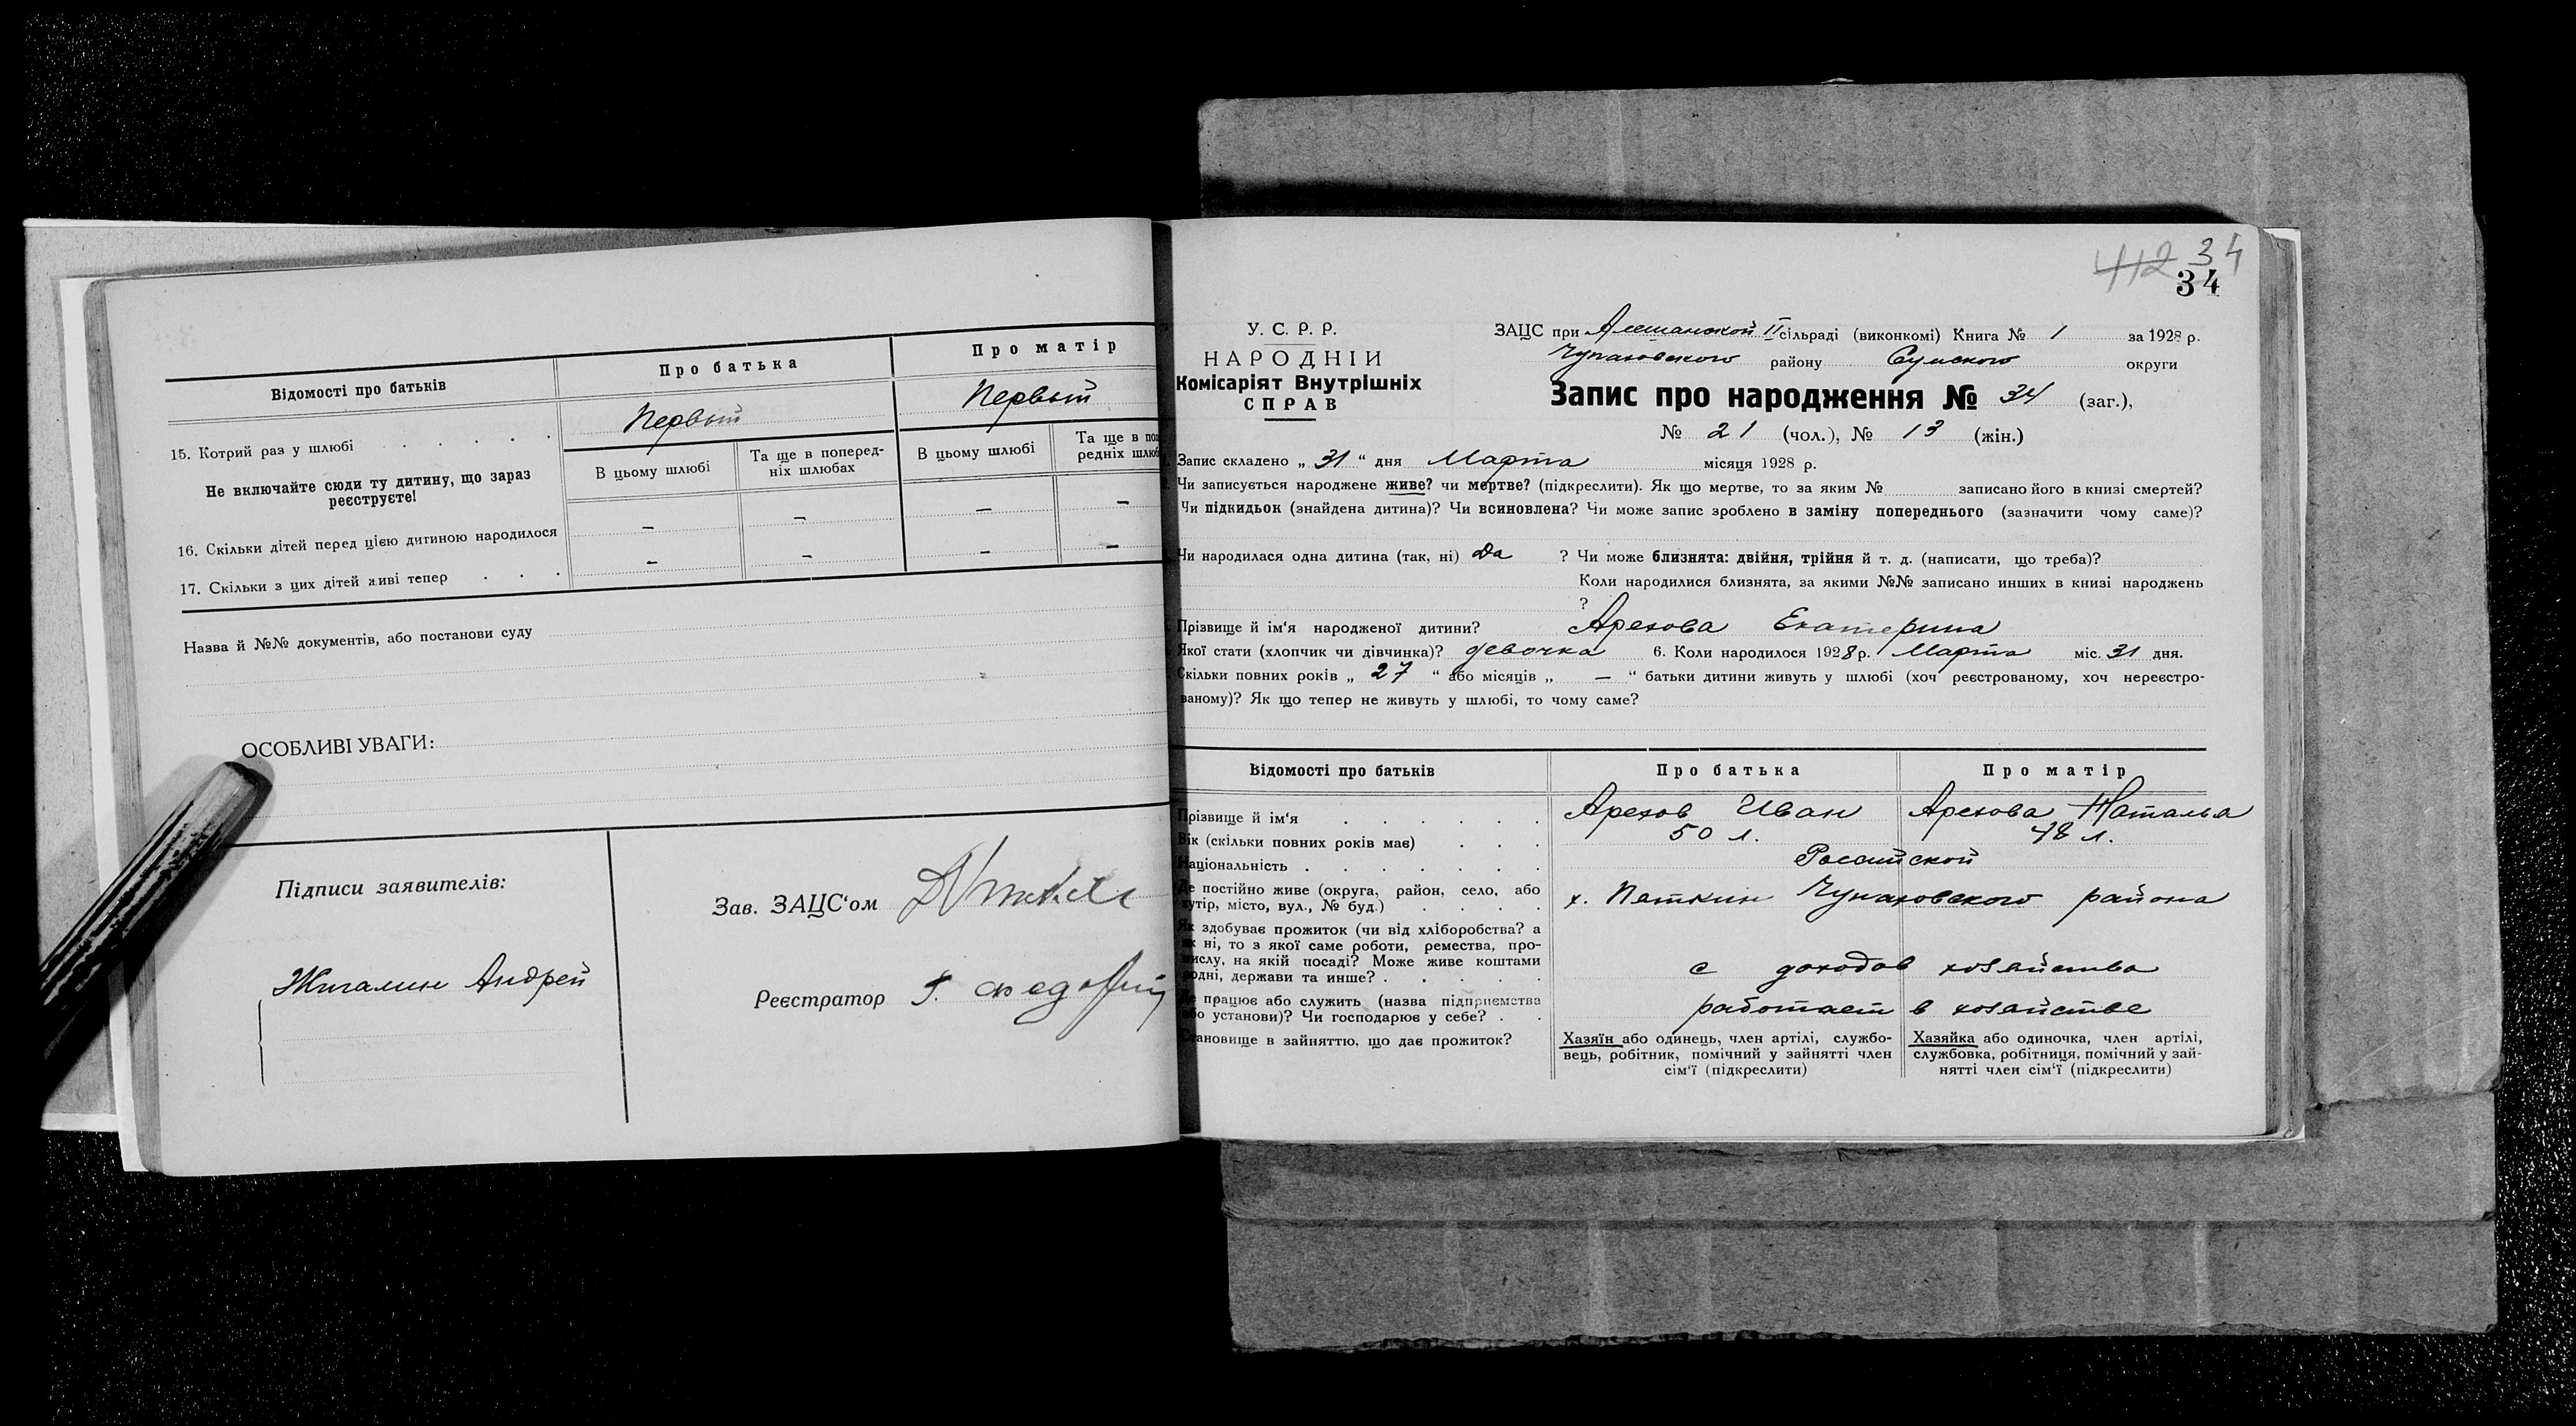 Відомості про батьків
Про батька
Про матір
15. Котрий раз у шлюбі . . . . .
Первый
Первый
Не включайте сюди ту дитину, що зараз
реєструєте!
В цьому шлюбі
Та ще в поперед-
ніх шлюбах
В цьому шлюбі
Та ще в по
редніх шлюб
16. Скільки дітей перед цією дитиною народилося
— — — —
17. Скільки з цих дітей живі тепер . . .
— — — —
Назва й №№ документів, або постанови суду
ОСОБЛИВІ УВАГИ:
Підписи заявителів:
Жигалин Андрей
Зав. ЗАЦС‘ом
Реєстратор
412 34
34
У. С. Р. Р.
НАРОДНІЙ
Комісаріят Внутрішніх
СПРАВ
ЗАЦС при Алешанской II сільраді (виконкомі) Книга № 1 за 1928 р.
Чупаховского району Сумского округи
Запис про народження № 34 (заг.),
№ 21 (чол.), № 13 (жін.)
Запис складено „ 31 “ дня Марта місяця 1928 р.
Чи записується народжене живе? чи мертве? (підкреслити). Як що мертве, то за яким № записано його в книзі смертей?
Чи підкидьок (знайдена дитина)? Чи всиновлена? Чи може запис зроблено в заміну попереднього (зазначити чому саме)?
Чи народилася одна дитина (так, ні) Да ? Чи може близнята: двійня, трійня й т. д. (написати, що треба)?
Коли народилися близнята, за якими №№ записано инших в книзі народжень
?
Прізвище й ім‘я народженої дитини? Арехова Екатерина
Якої стати (хлопчик чи дівчинка)? девочка 6. Коли народилося 1928 р. Марта міс. 31 дня.
Скільки повних років „ 27 “ або місяців „ — “ батьки дитини живуть у шлюбі (хоч реєстрованому, хоч нереєстро-
ваному)? Як що тепер не живуть у шлюбі, то чому саме?
Відомості про батьків
Про батька
Про матір
Прізвище й ім‘я . . . . . .
Арехов Иван
Арехова Наталья
Вік (скільки повних років має) . . .
50 л.
48 л.
Національність . . . . . . .
Российской
Де постійно живе (округа, район, село, або
хутір, місто, вул., № буд.) . . . .
х. Пяткин Чупаховского района
Як здобуває прожиток (чи від хліборобства? а
як ні, то з якої саме роботи, ремества, про-
мислу, на якій посаді? Може живе коштами
родні, держави та инше? . . . . .
с доходов хозяйства
Де працює або служить (назва підприємства
або установи)? Чи господарює у себе? . .
работает в хозяйстве
Становище в зайняттю, що дає прожиток?
Хазяїн або одинець, член артілі, службо-
вець, робітник, помічний у зайнятті член
сім‘ї (підкреслити)
Хазяйка або одиночка, член артілі,
службовка, робітниця, помічний у зай-
нятті член сім‘ї (підкреслити)